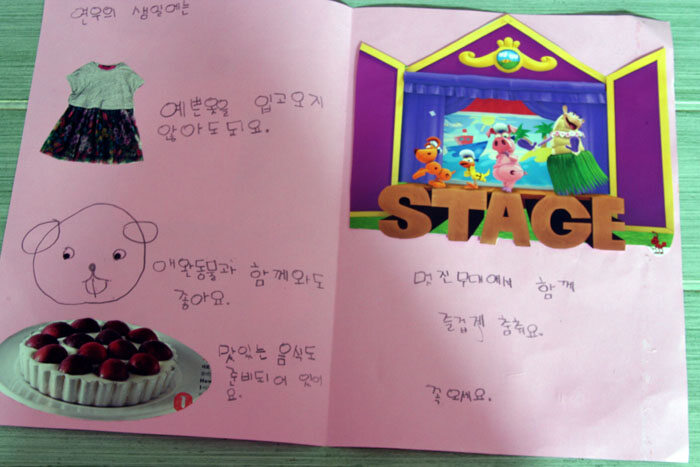 연우의 생일에는
예쁜옷을 입고오지
않아도되요.
애완동물과 함께와도
좋아요.
맛있는 음식도
준비되어 있어
요.
STAGE
멋진무대에서 함께
즐겁게 춤춰요.
꼭 오세요.